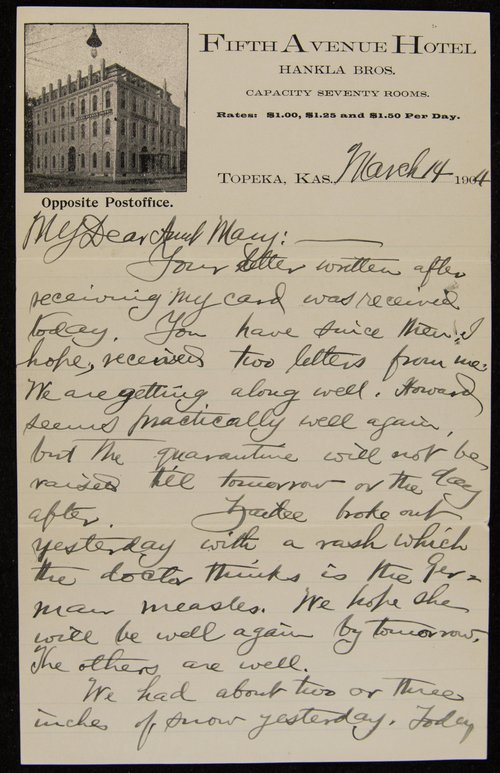 FIFTH AVENUE HOTEL
HANKLA BROS.
CAPACITY SEVENTY ROOMS.
Rates: $1.00, $1.25 and $1.50 Per Day.
Opposite Postoffice.
TOPEKA, KAS., March 14 1904
My Dear Aunt Mary:
Your letter written after
receiving my card was received
today. You have since then, I
hope, received two letters from me.
We are getting along well. Howard
seems practically well again,
but the quarantine will not be
raised till tomorrow or the day
after. broke out
yesterday with a rash which
the doctor thinks is the Ger-
man measles. We hope she
will be well again by tomorrow.
The others are well.
We had about two or three
inches of snow yesterday. Today